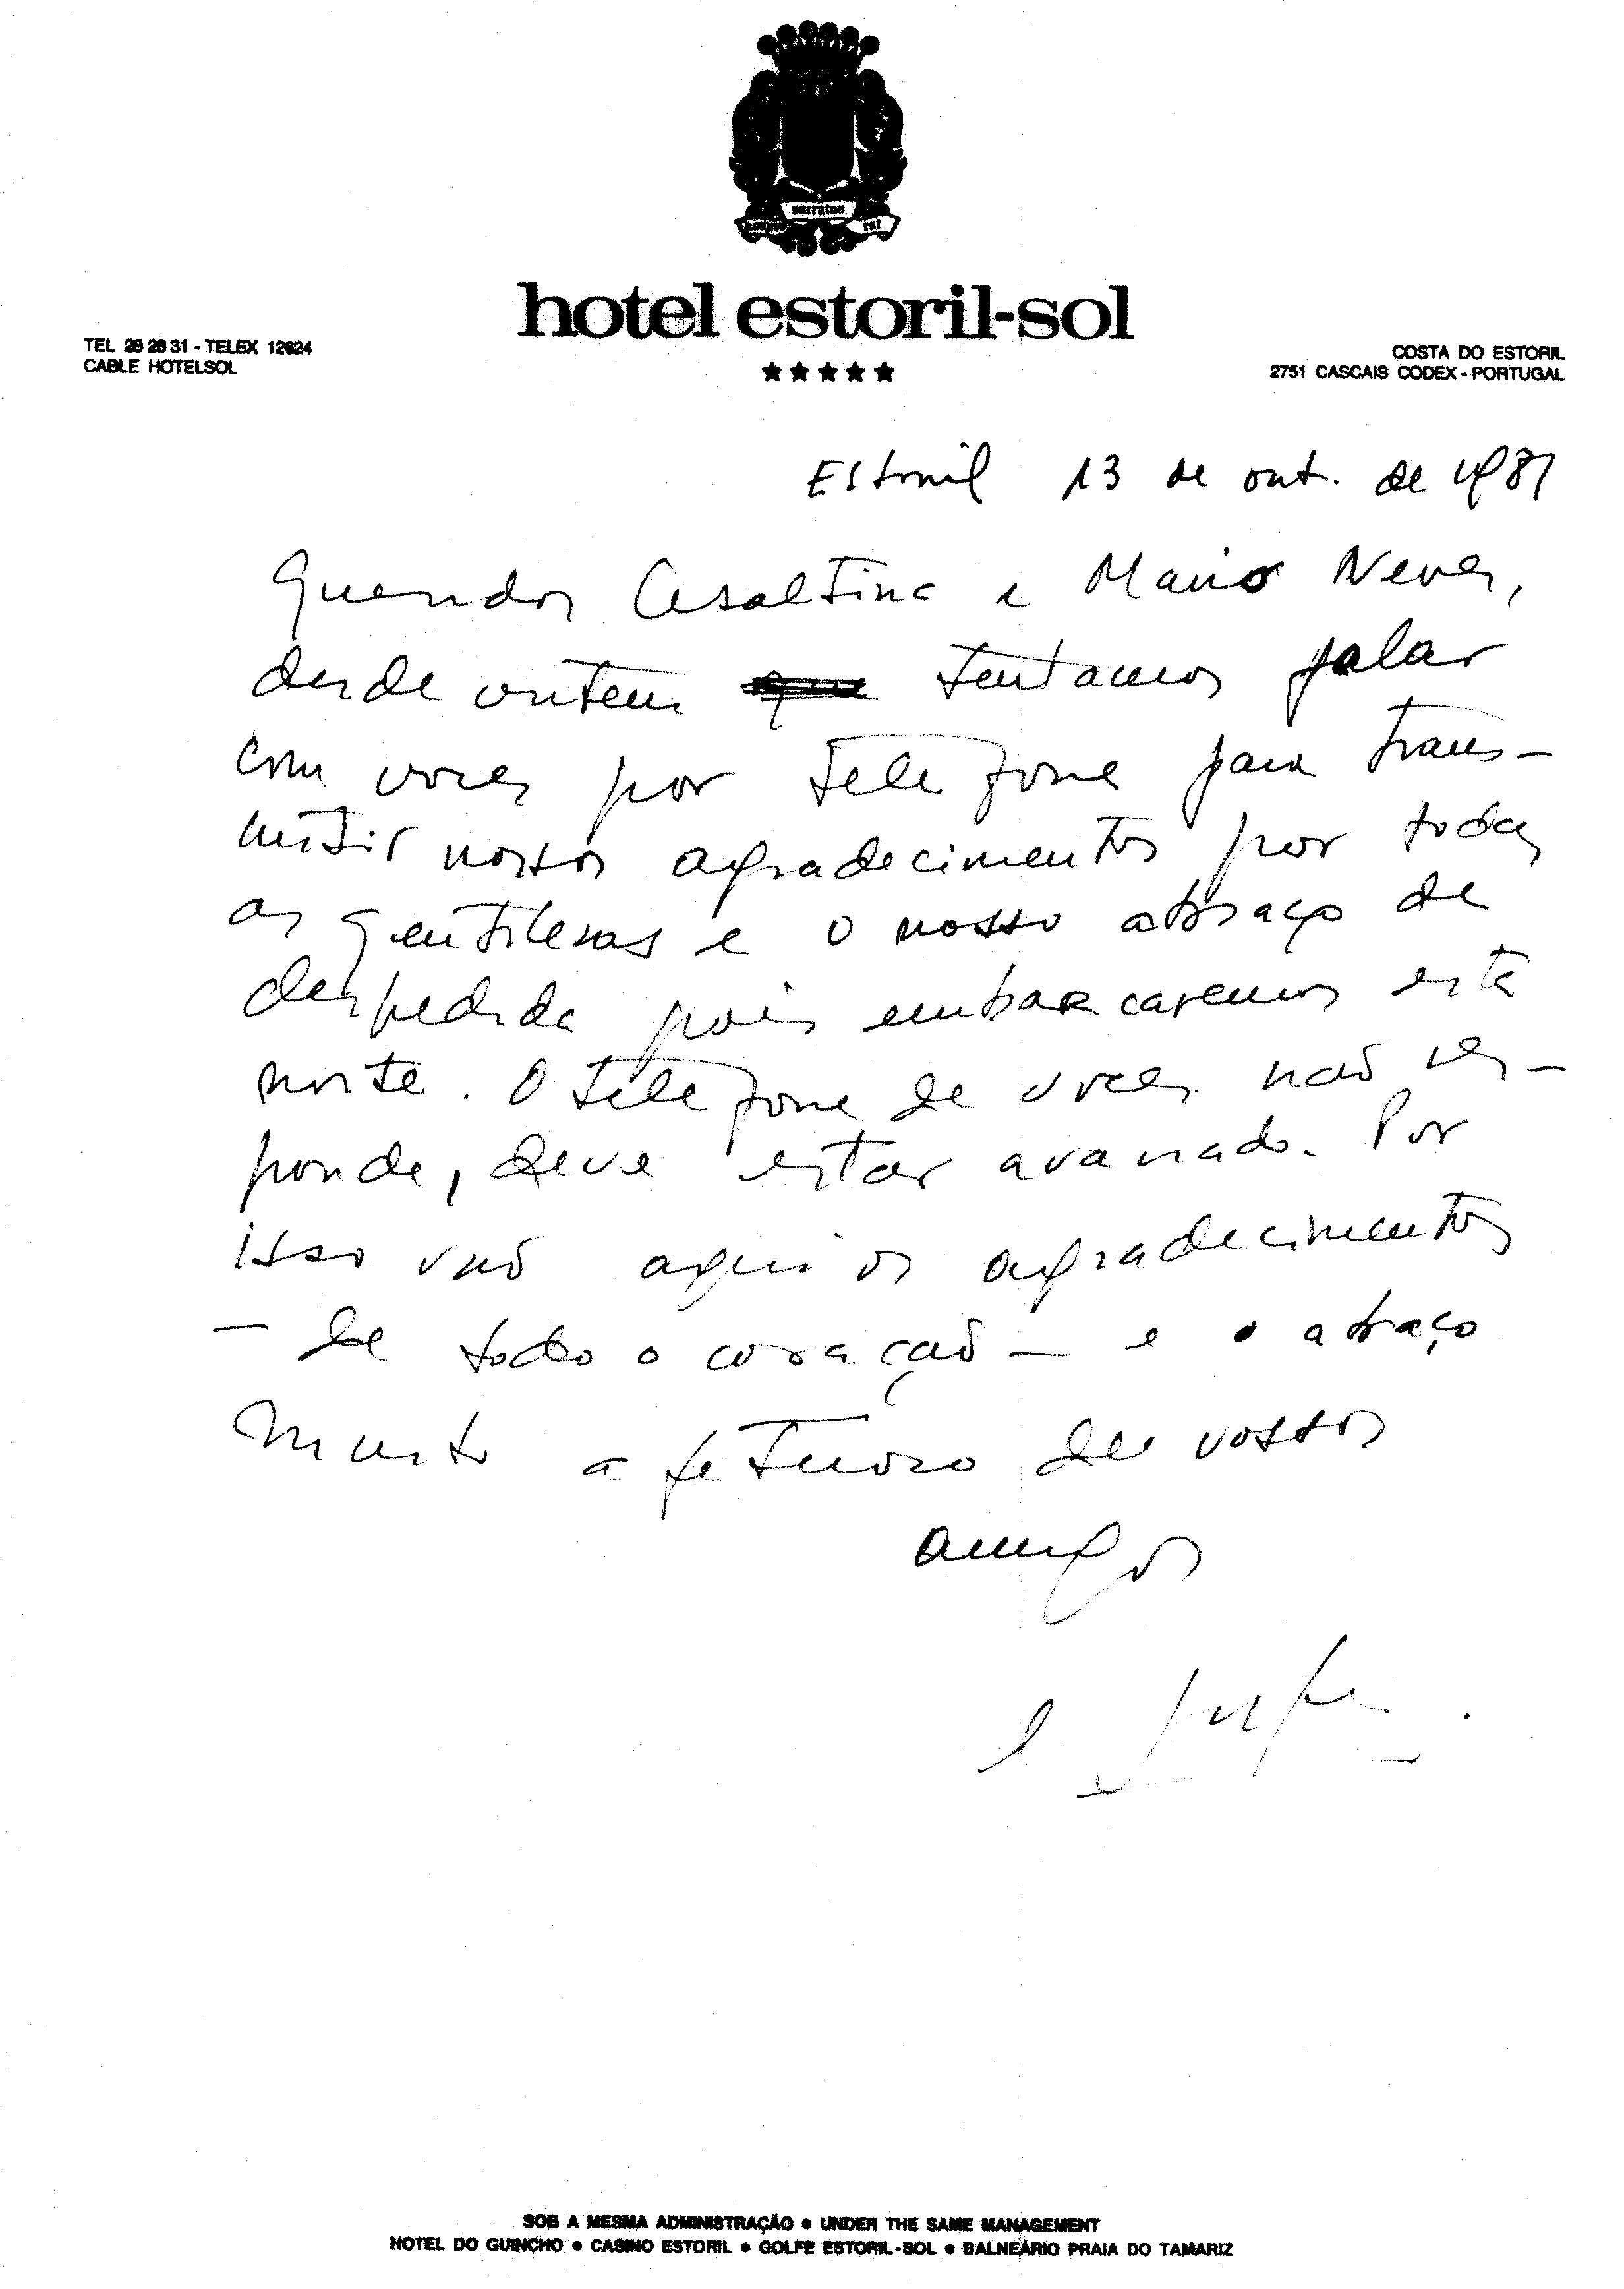 hotel estoril-sol
★★★★★
TEL 28 28 31 - TELEX 12624
CABLE HOTELSOL
COSTA DO ESTORIL
2751 CASCAIS CODEX - PORTUGAL
Estoril 13 de out. de 1981
Queridos Cesaltina e Mario Neves,
desde ontem tentamos falar
com voces por telefone para trans-
mitir nossos agradecimentos por todas
as gentilesas e o nosso abraço de
despedida pois embarcaremos esta
noite. O telefone de voces não res-
ponde, deve estar avariado. Por
isso vão aqui os agradecimentos
- de todo o coração - e o abraço
muito afetuoso dos vossos
amigos
SOB A MESMA ADMINISTRAÇÃO ● UNDER THE SAME MANAGEMENT
HOTEL DO GUINCHO ● CASINO ESTORIL ● GOLFE ESTORIL-SOL ● BALNEÁRIO PRAIA DO TAMARIZ